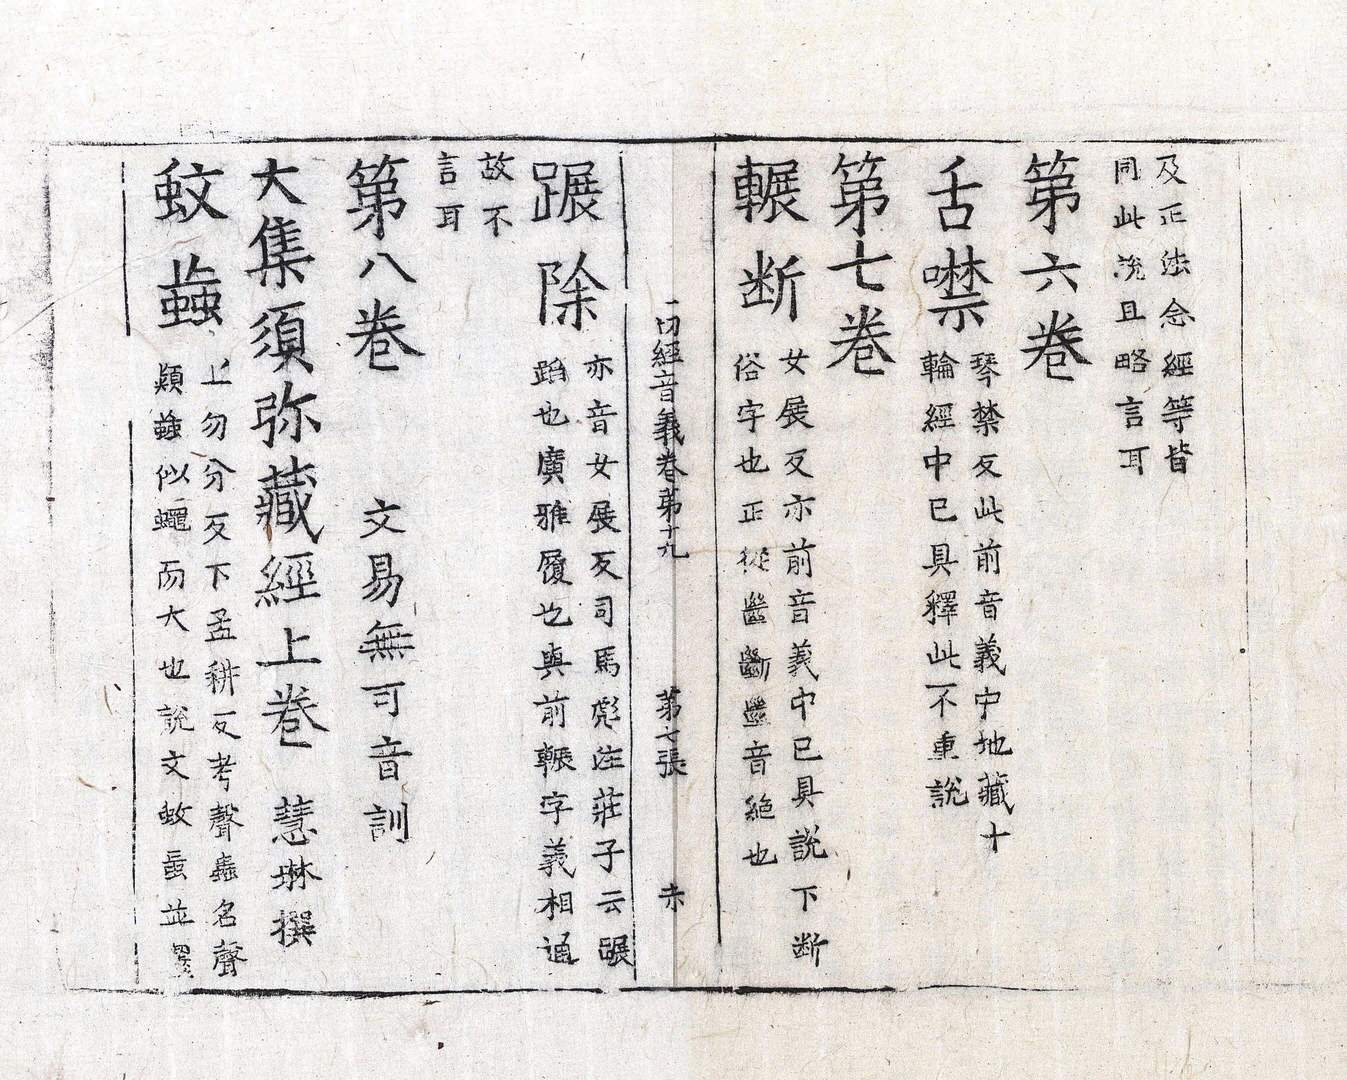 及正法念經等皆
同此說且略言耳
第六卷
舌噤
琴禁反此前音義中地藏十
輪經中已具釋此不重說
第七卷
輾斷
女展反亦前音義中已具說下斷
俗字也正從𢇍斷𢇍音絕也
一切經音義卷第十九 第七張
蹍除
亦音女展反司馬彪注莊子云蹍
蹈也廣雅履也與前輾字義相通
故不
言耳
第八卷 文易無可音訓
大集須弥藏經上卷 慧琳撰
蚊蝱
上勿分反下孟耕反考聲蟲名聲
類蝱似蠅而大也說文蚊䖟並